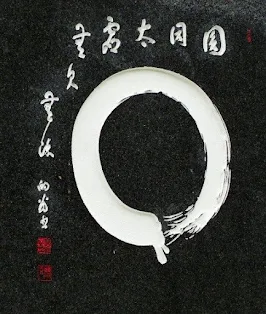 圓同太虛
無欠無餘